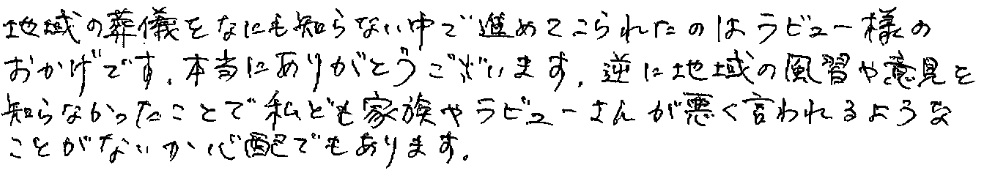 地域の葬儀をなにも知らない中で進めてこられたのはラビュー様の
おかげです。本当にありがとうございます。逆に地域の風習や意見を
知らなかったことで私ども家族やラビューさんが悪く言われるような
ことがないか心配でもあります。